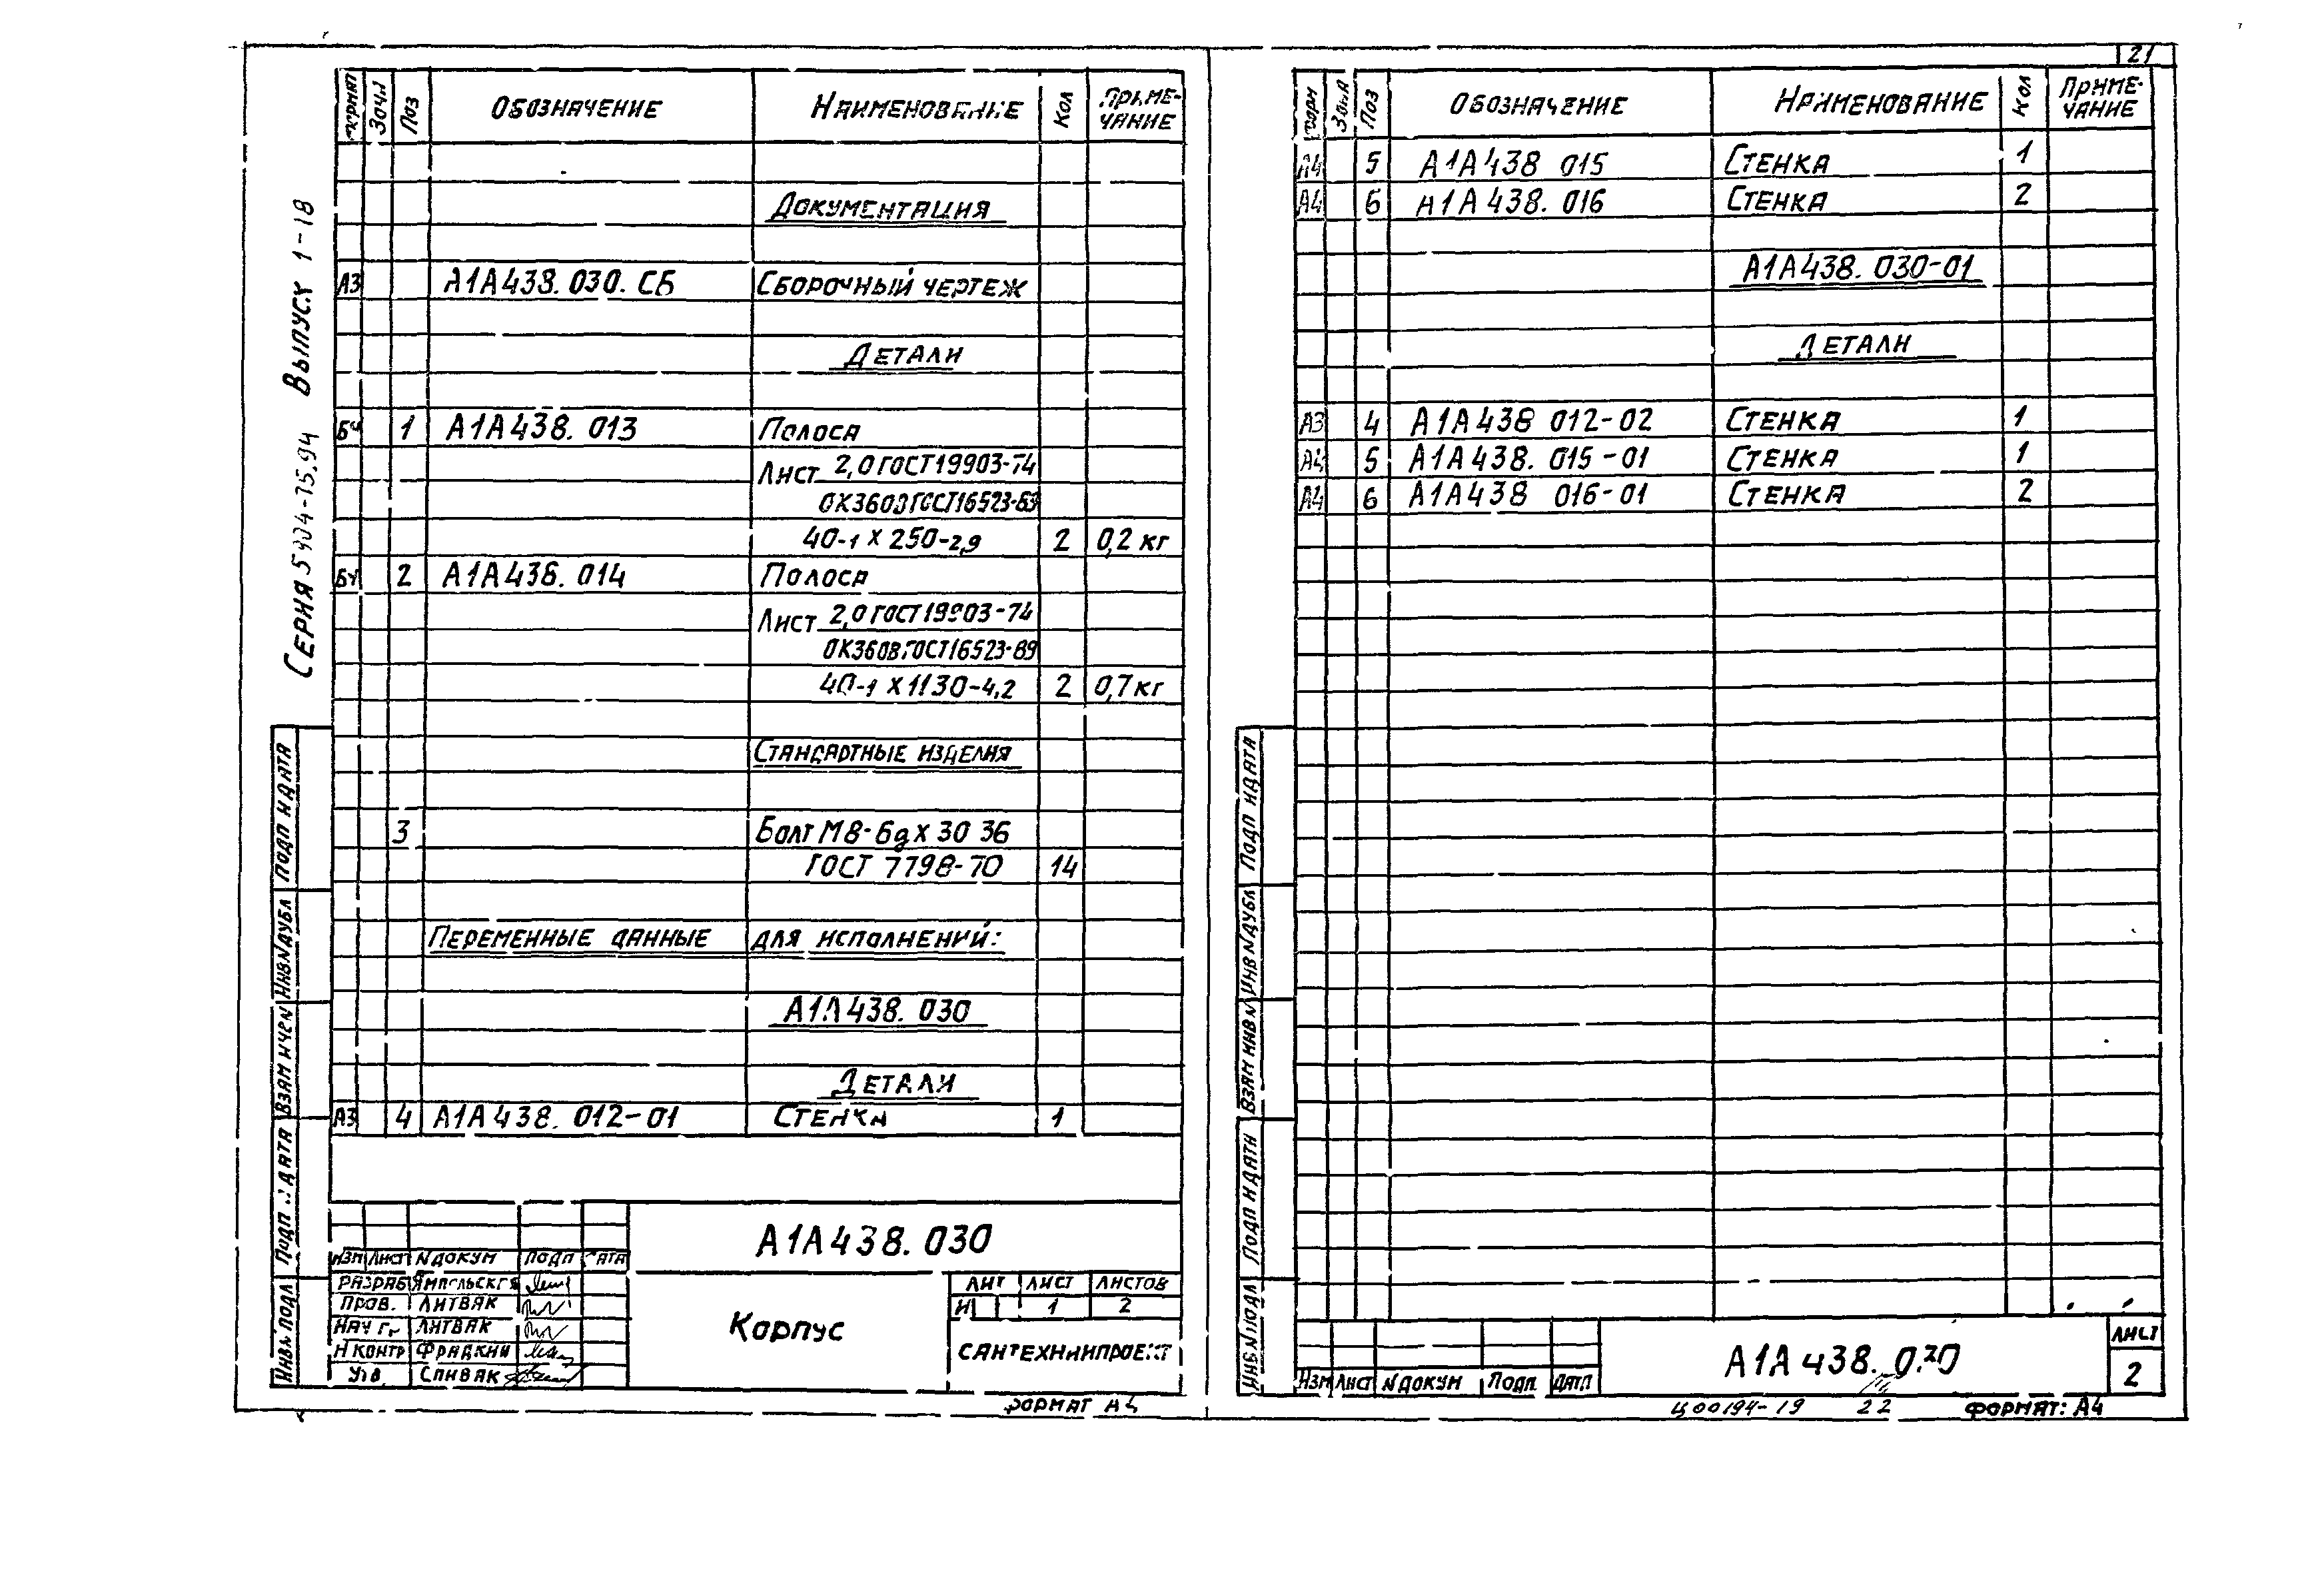 21
СЕРИЯ 5.904-75.94 ВЫПУСК 1-18
ФОРМАТ ЗОНА ПОЗ ОБОЗНАЧЕНИЕ НАИМЕНОВАНИЕ КОЛ ПРИМЕ-
ЧАНИЕ
ДОКУМЕНТАЦИЯ
А3 А1А438.030.СБ СБОРОЧНЫЙ ЧЕРТЕЖ
ДЕТАЛИ
БЧ 1 А1А438.013 Полоса
Лист 2,0 ГОСТ 19903-74
ОК360В ГОСТ 16523-89
40-1 Х 250-2,9 2 0,2 кг
БЧ 2 А1А438.014 Полоса
Лист 2,0 ГОСТ 19903-74
ОК360В ГОСТ 16523-89
40-1 Х 1130-4,2 2 0,7 кг
СТАНДАРТНЫЕ ИЗДЕЛИЯ
3 Болт М8-6g Х 30 36
ГОСТ 7798-70 14
ПЕРЕМЕННЫЕ ДАННЫЕ ДЛЯ ИСПОЛНЕНИЙ:
А1А438.030
ДЕТАЛИ
А3 4 А1А438.012-01 СТЕНКА 1
ПОДП И ДАТА
ИНВ N ДУБЛ
ВЗАМ ИНВ N
ПОДП И ДАТА
ИНВ N ПОДЛ
А1А438.030
ИЗМ ЛИСТ N ДОКУМ ПОДП ДАТА
РАЗРАБ ЯМПОЛЬСКАЯ
ПРОВ. ЛИТВАК
НАЧ Г. ЛИТВАК
Н КОНТР ФРАДКИН
УТВ. СПИВАК
Корпус
ЛИТ ЛИСТ ЛИСТОВ
И 1 2
САНТЕХНИИПРОЕКТ
ФОРМАТ А4
ФОРМ ЗОНА ПОЗ ОБОЗНАЧЕНИЕ НАИМЕНОВАНИЕ КОЛ ПРИМЕ-
ЧАНИЕ
А4 5 А1А438 015 СТЕНКА 1
А4 6 А1А438.016 СТЕНКА 2
А1А438.030-01
ДЕТАЛИ
А3 4 А1А438 012-02 СТЕНКА 1
А4 5 А1А438.015-01 СТЕНКА 1
А4 6 А1А438 016-01 СТЕНКА 2
ПОДП И ДАТА
ИНВ N ДУБЛ
ВЗАМ ИНВ N
ПОДП И ДАТА
ИНВ N ПОДЛ
ИЗМ ЛИСТ N ДОКУМ ПОДП ДАТА
А1А438.030
ЛИСТ
2
Ц00194-19 22 ФОРМАТ: А4